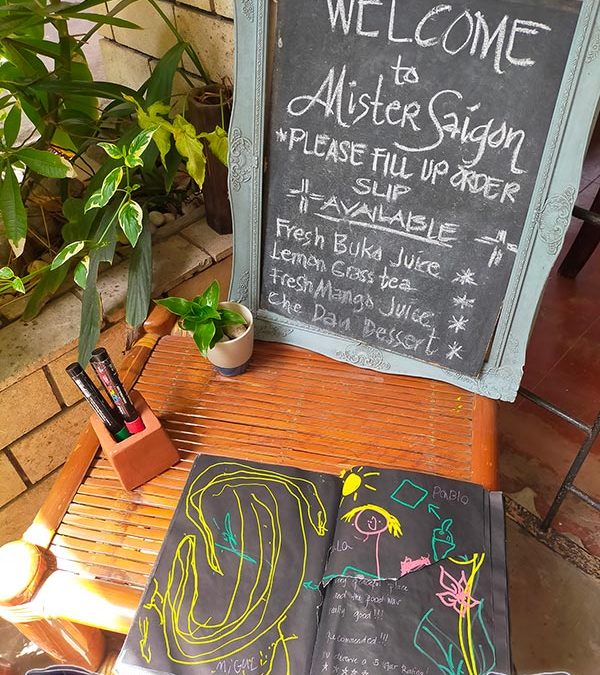 WELCOME
to
Mister Saigon
*PLEASE FILL UP ORDER
SLIP
AVAILABLE
Fresh Buko Juice *
Lemon Grass tea *
Fresh Mango Juice *
Che Dau Dessert *
PaBLO
La
place
and the food was
really good!!!
Recommended!!!
MiGUEL